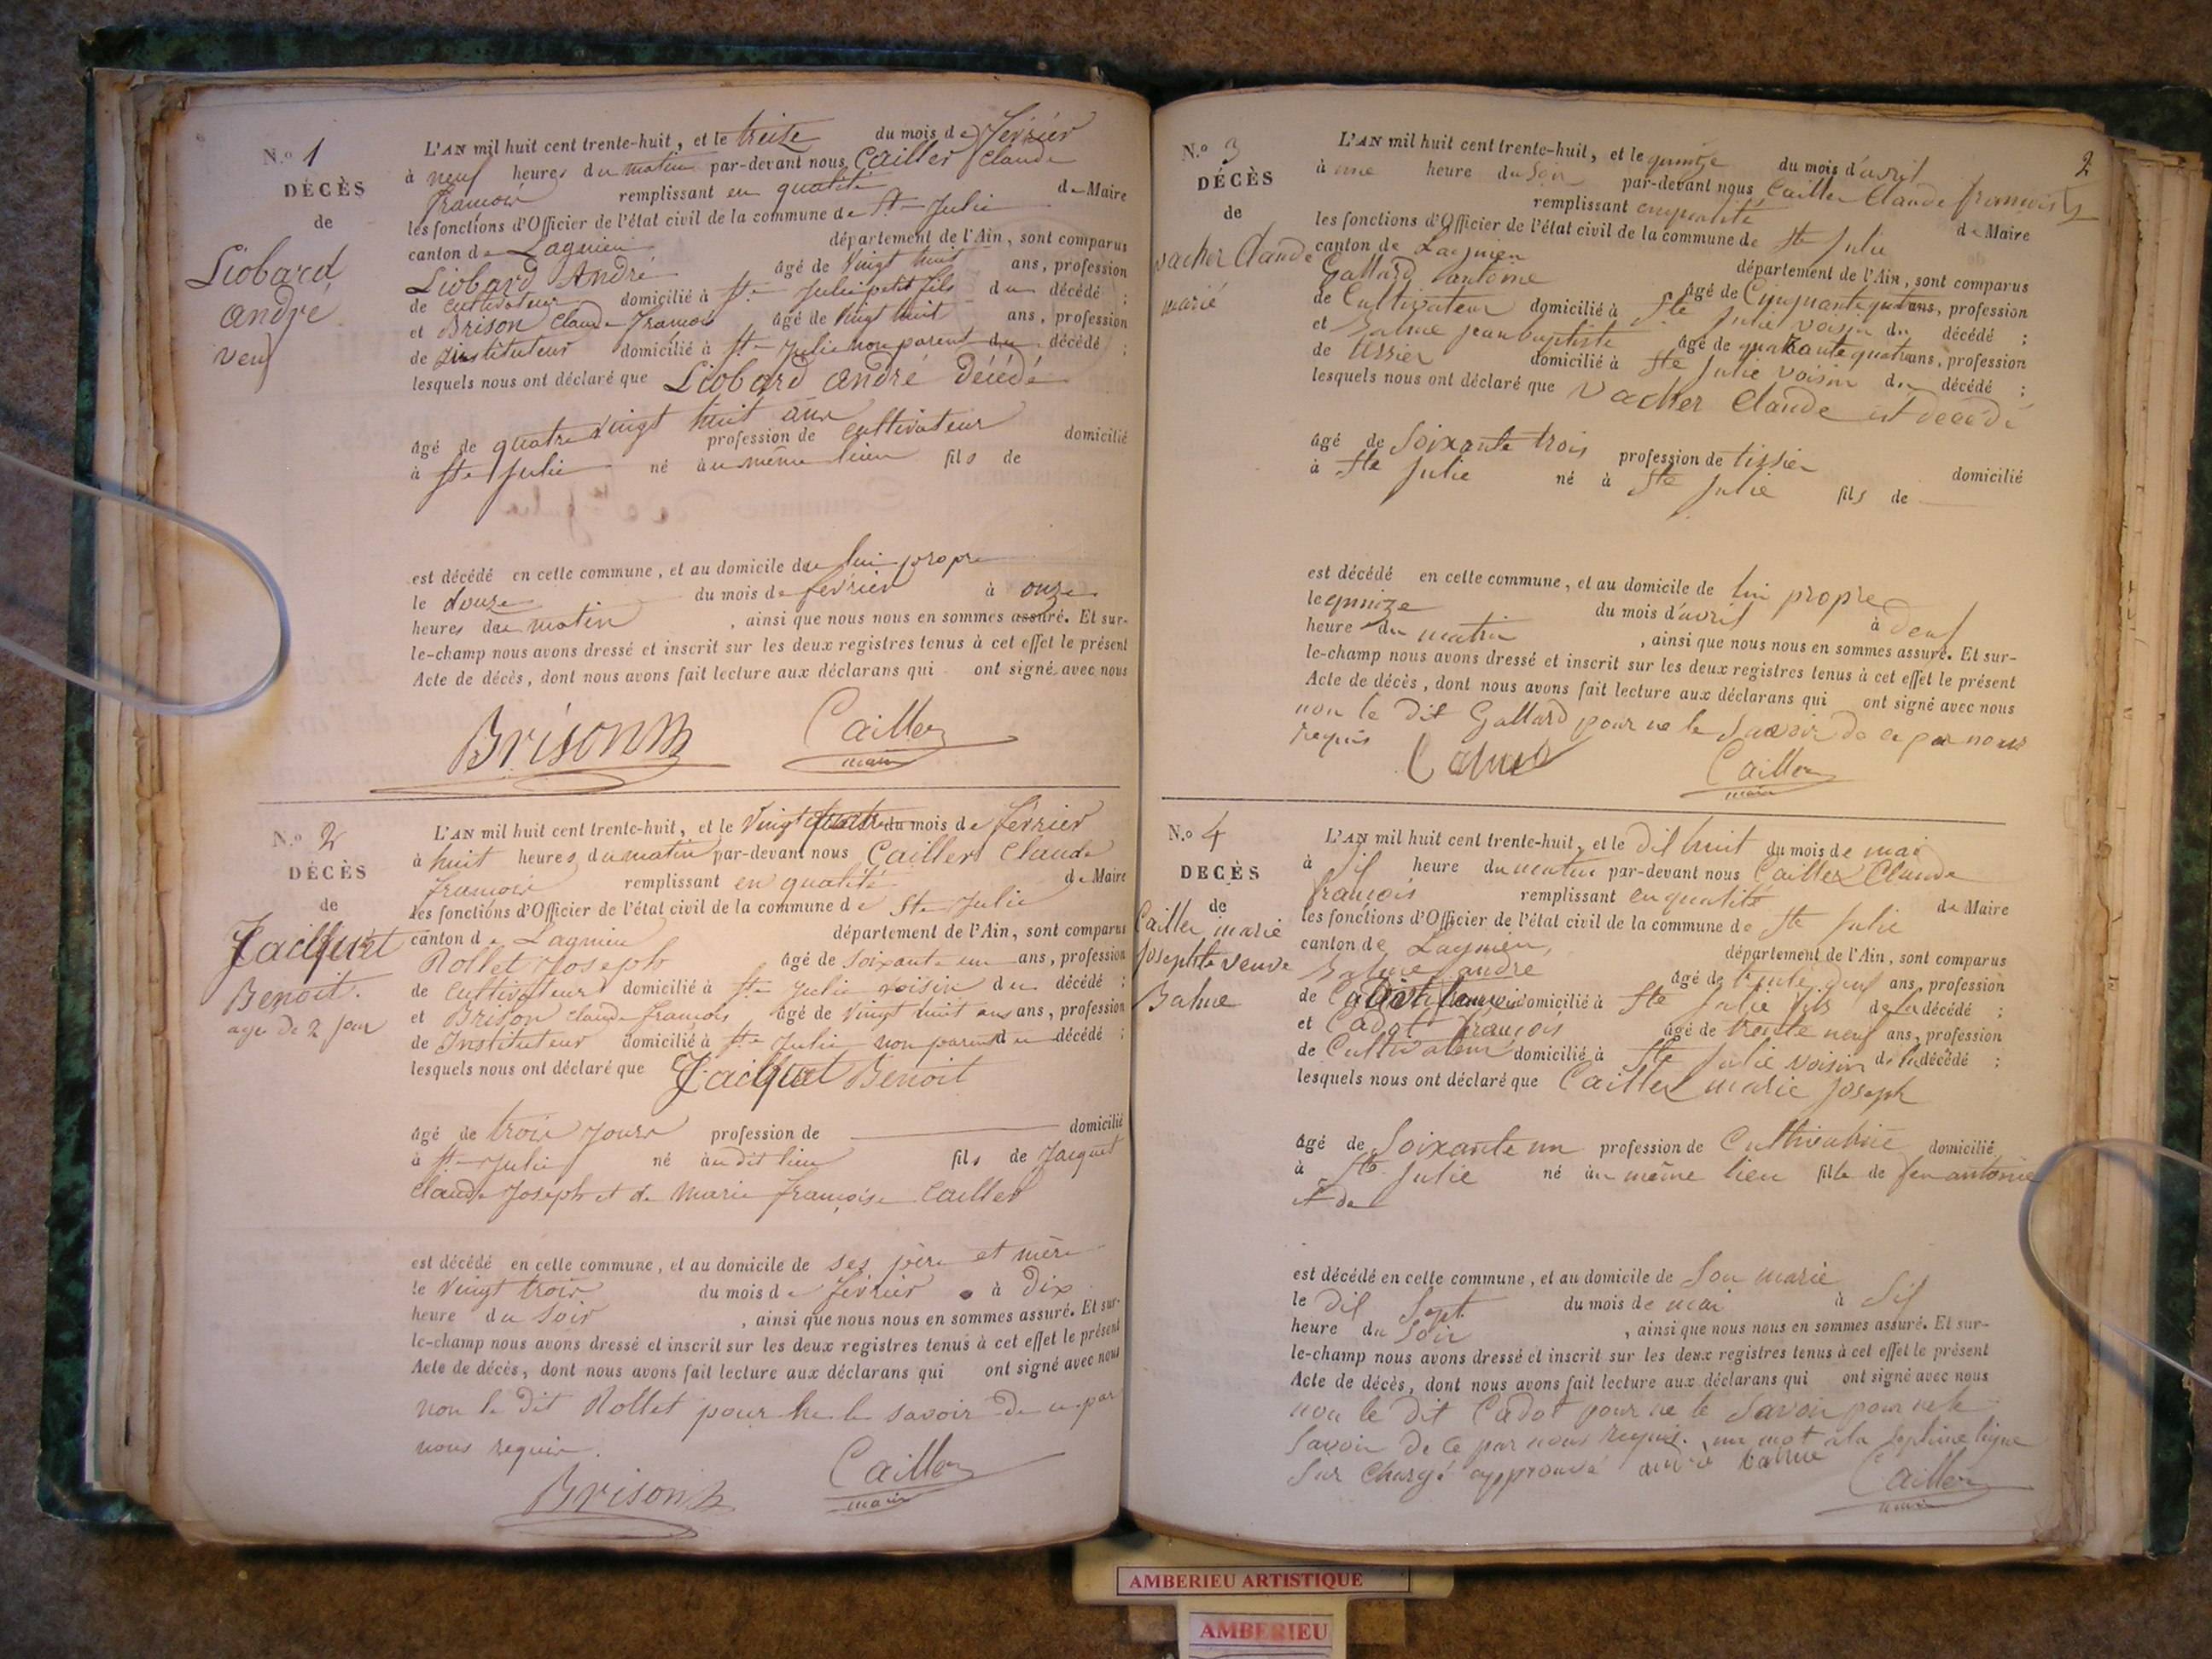 N.º 1
DÉCÈS
de
Liobard
André
veuf
L'AN mil huit cent trente-huit, et le treize du mois de Février
à neuf heures du matin par-devant nous Cailler Claude
François remplissant en qualité de Maire
les fonctions d'Officier de l'état civil de la commune de Ste Julie
canton de Lagnieu département de l'Ain, sont comparus
Liobard André âgé de vingt huit ans, profession
de cultivateur domicilié à Ste Julie petit fils du décédé ;
et Brison Claude François âgé de vingt huit ans, profession
de instituteur domicilié à Ste Julie non parent du décédé ;
lesquels nous ont déclaré que Liobard André Décédé
âgé de quatre vingt huit ans profession de cultivateur domicilié
à Ste Julie né au même lieu fils de
est décédé en celle commune, et au domicile de lui propre
le douze du mois de février à onze
heures du matin , ainsi que nous nous en sommes assuré. Et sur-
le-champ nous avons dressé et inscrit sur les deux registres tenus à cet effet le présent
Acte de décès, dont nous avons fait lecture aux déclarans qui ont signé avec nous
Brison Cailler
maire
N.º 2
DÉCÈS
de
Jacquet
Benoit.
agé de 2 jour
L'AN mil huit cent trente-huit, et le vingt quatre du mois de février
à huit heures du matin par-devant nous Cailler Claude
françois remplissant en qualité de Maire
les fonctions d'Officier de l'état civil de la commune de Ste Julie
canton de Lagnieu département de l'Ain, sont comparus
Rollet Joseph âgé de soixante un ans, profession
de cultivateur domicilié à Ste Julie voisin du décédé ;
et Brison Claude françois âgé de vingt huit ans ans, profession
de Instituteur domicilié à Ste Julie non parent du décédé ;
lesquels nous ont déclaré que Jacquet Benoit
âgé de trois jours profession de domicilié
à Ste Julie né au dit lieu fils de Jacquet
Claude Joseph et de Marie françoise Cailler
est décédé en celle commune, et au domicile de ses père et mère
le vingt trois du mois de février à dix
heure du soir , ainsi que nous nous en sommes assuré. Et sur-
le-champ nous avons dressé et inscrit sur les deux registres tenus à cet effet le présent
Acte de décès, dont nous avons fait lecture aux déclarans qui ont signé avec nous
non le dit Rollet pour ne le savoir de ce par
nous requis.
Brison Cailler
maire
2
N.º 3
DÉCÈS
de
vacher Claude
marié
L'AN mil huit cent trente-huit, et le quinze du mois d'avril
à une heure du soir par-devant nous Cailler Claude françois
remplissant en qualité de Maire
les fonctions d'Officier de l'état civil de la commune de Ste Julie
canton de Lagnieu département de l'Ain, sont comparus
Gallard antoine âgé de Cinquante ans, profession
de Cultivateur domicilié à Ste Julie voisin du décédé ;
et Balme jean baptiste âgé de quarante quatre ans, profession
de tissier domicilié à Ste Julie voisin du décédé ;
lesquels nous ont déclaré que Vacher Claude est décédé
âgé de soixante trois profession de tissier domicilié
à Ste Julie né à Ste Julie fils de
est décédé en celle commune, et au domicile de lui propre
le quinze du mois d'avril à
heure du matin , ainsi que nous nous en sommes assuré. Et sur-
le-champ nous avons dressé et inscrit sur les deux registres tenus à cet effet le présent
Acte de décès, dont nous avons fait lecture aux déclarans qui ont signé avec nous
non le dit Gallard pour ne le savoir de ce par nous
requis
Cailler
maire
N.º 4
DECÈS
de
Cailler marie
Josephte veuve
Balme
L'AN mil huit cent trente-huit, et le dix huit du mois de mai
à six heure du matin par-devant nous Cailler Claude
françois remplissant en qualité de Maire
les fonctions d'Officier de l'état civil de la commune de Ste Julie
canton de Lagnieu département de l'Ain, sont comparus
Balme andré âgé de trente ans, profession
de domicilié à Ste Julie fils de la décédé ;
et Cadot françois âgé de trente neuf ans, profession
de Cultivateur domicilié à Ste Julie voisin de la décédé ;
lesquels nous ont déclaré que Cailler marie joseph
âgé de soixante un profession de Cultivatrice domicilié
à Ste Julie né au même lieu fille de feu antoine
et de
est décédé en celle commune, et au domicile de son marie
le dix sept du mois de mai à six
heure du soir , ainsi que nous nous en sommes assuré. Et sur-
le-champ nous avons dressé et inscrit sur les deux registres tenus à cet effet le présent
Acte de décès, dont nous avons fait lecture aux déclarans qui ont signé avec nous
non le dit Cadot pour ne le savoir pour ne le
savoir de ce par nous requis. un mot à la septime ligne
sur chargé approuvé andré balme Cailler
maire
AMBERIEU ARTISTIQUE
AMBERIEU